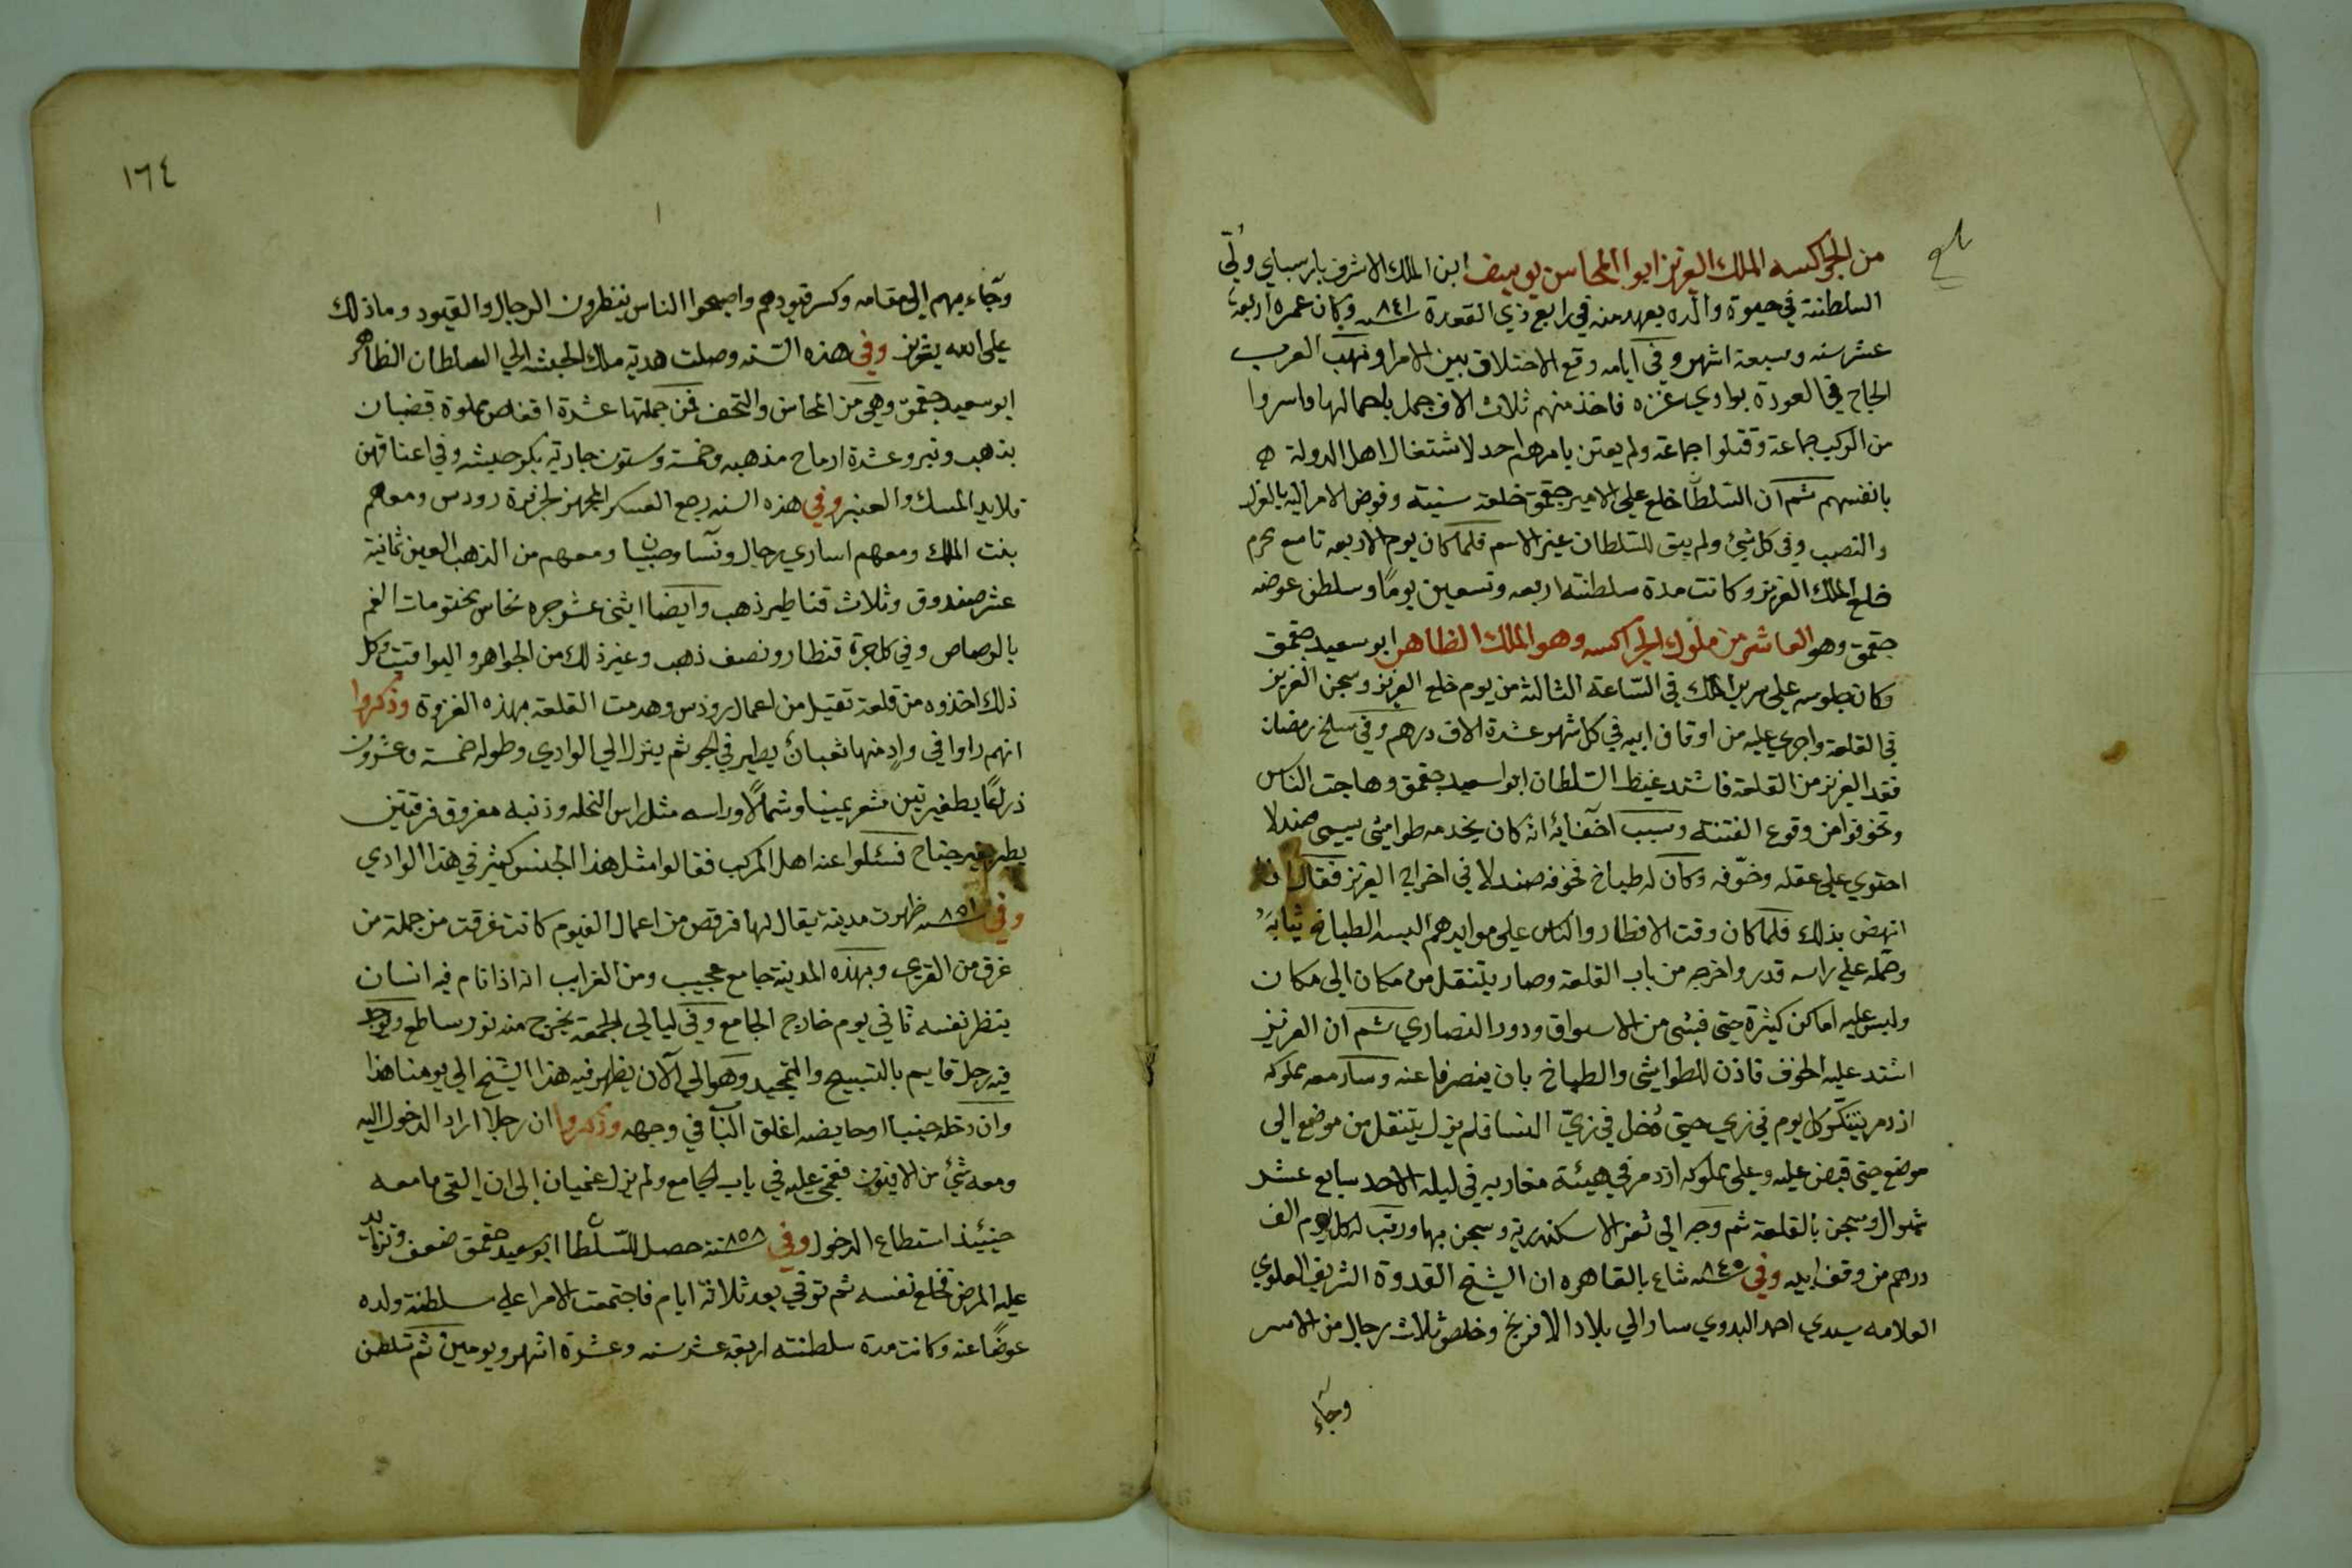 من الجراكسه الملك العزيز ابوا المحاسن يوسف ابن الملك الاشرف بارسباي ولّي
السلطنة في حيوة والده بعهد منه في رابع ذي القعدة سنه ٨٤١ وكان عمره اربعة
عشر سنه وسبعة اشهر وفي ايامه وقع الاختلاف بين الامرا ونهب العرب
الحاج في العودة بوادي عنزه فاخذ منهم ثلاث الاف جمل باحمالها واسروا
من الركب جماعة وقتلوا جماعة ولم يعتن بامرهم احد لاشتغال اهل الدولة
بانفسهم ثم ان السلطان خلع على الامير جقمق خلعة سنية وفوض الامر اليه بالعزل
والنصب وفي كل شيء ولم يبق للسلطان غير الاسم فلما كان يوم الاربعه تاسع محرم
خلع الملك العزيز وكانت مدة سلطنته اربعه وتسعين يومًا وسلطن عوضه
جقمق وهو العاشر من ملوك الجراكسه وهو الملك الظاهر ابو سعيد جقمق
وكان جلوسه على سرير الملك في السّاعة الثالثه من يوم خلع العزيز وسجن العزيز
في القلعة واجري عليه من اوقاف ابيه في كل شهر عشرة الاف درهم وفي سلخ رمضان
فقد العزيز من القلعة فاشتد غيظ السلطان ابوا سعيد جقمق وهاجت الناس
وتخوفوا من وقوع الفتنة وسبب اخفايه انه كان يخدمه طواشي يسمي صندلا
احتوي على عقله وخوّفه وكان له طباخ فخوفه صندلا في اخراج العزيز فقال انا
انهض بذلك فلما كان وقت الافطار والناس على موايدهم البسه الطباخ ثيابه
وحمله على راسه قدر واخرجه من باب القلعة وصار يتنقل من مكان الى مكان
وليس عليه اماكن كثيرة حتى فتشي من الاسواق ودور النصاري ثم ان العزيز
اشتد عليه الخوف فاذن للطواشي والطباخ بان ينصرفا عنه وسار معه مملوكه
ازدمر يتنكر كل يوم في زي حتى دُخل في زيّ النسا فلم يزل يتنقل من موضع الى
موضع حتى قبض عليه وعلى مملوكه ازدمر في هيئة مغاربه في ليلة الاحد سابع عشر
شوال وسجن بالقلعة ثم وجه الى ثغر الاسكندرية وسجن بها ورتب له كل يوم الف
درهم من وقف ابيه وفي سنه ٨٤٥ شاع بالقاهره ان الشيخ القدوة الشريف العلوي
العلامه سيدي احمد البدوي سار الي بلاد الافرنج وخلص ثلاث رجال من الاسر
وجآء
١٦٤
وجآء بهم الى مقامه وكسر قيودهم واصبحوا الناس ينظرون الرجال والقيود وما ذلك
على الله بعزيز وفي هذه السنه وصلت هدية ملك الحبشه الى السلطان الظاهر
ابو سعيد جقمق وهي من المحاسن والتحف فمن جملتها عشرة اقفاص مملوة قضبان
بذهب وتبر وعشرة ارماح مذهبه وخمسة وستون جارية بكر حبشه وفي اعناقهن
قلايد المسك والعنبر وفي هذه السنه رجع العسكر المجهز لجزيرة رودس ومعهم
بنت الملك ومعهم اساري رجال ونسآ وصبيان ومعهم من الذهب العين ثمانية
عشر صندوق وثلاث قناطير ذهب وايضا اثني عشر جره نحاس مختومات الفم
بالرصاص وفي كل جرة قنطار ونصف ذهب وغير ذلك من الجواهر واليواقيت وكل
ذلك اخذوه من قلعة تقيل من اعمال رودس وهدمت القلعة بهذه الغزوة وذكروا
انهم راوا في وادٍ منها ثعبانٌ يطير في الجو ثم ينزل الى الوادي وطوله خمسة وعشرون
ذراعًا بظفيرتين شعر يمينا وشمالًا وراسه مثل راس النخله وذنبه مفروق فرقتين
يطير بغير جناح فسئلوا عنه اهل المركب فقالوا مثل هذا الجنس كثير في هذا الوادي
وفي سنه ٨٥١ ظهرت مدينة يقال لها قرقص من اعمال الفيوم كانت غرقت من جملة من
غرق من القري وبهذه المدينة جامع عجيب ومن الغرايب انه اذا نام فيه انسان
ينظر نفسه ثاني يوم خارج الجامع وفي ليالي الجمعة يخرج منه نور ساطع ويوجد
فيه رجل قايم بالتسبيح والتمجيد وهو الى الآن يظهر فيه هذا الشيخ الى يومنا هذا
وان دخله جنبا او حايضه اغلق الباب في وجهه وذكروا ان رجلا اراد الدخول اليه
ومعه شيء من الافيون فغمي عليه في باب الجامع ولم يزل غميان الى ان القى ما معه
حينئذ استطاع الدخول وفي سنة ٨٥٨ حصل للسلطان ابو سعيد جقمق ضعف وتزايد
عليه المرض فخلع نفسه ثم توفي بعد ثلاثة ايام فاجتمعت الامرا على سلطنة ولده
عوضًا عنه وكانت مدة سلطنته اربعة عشر سنه وعشرة اشهر ويومين ثم تسلطن